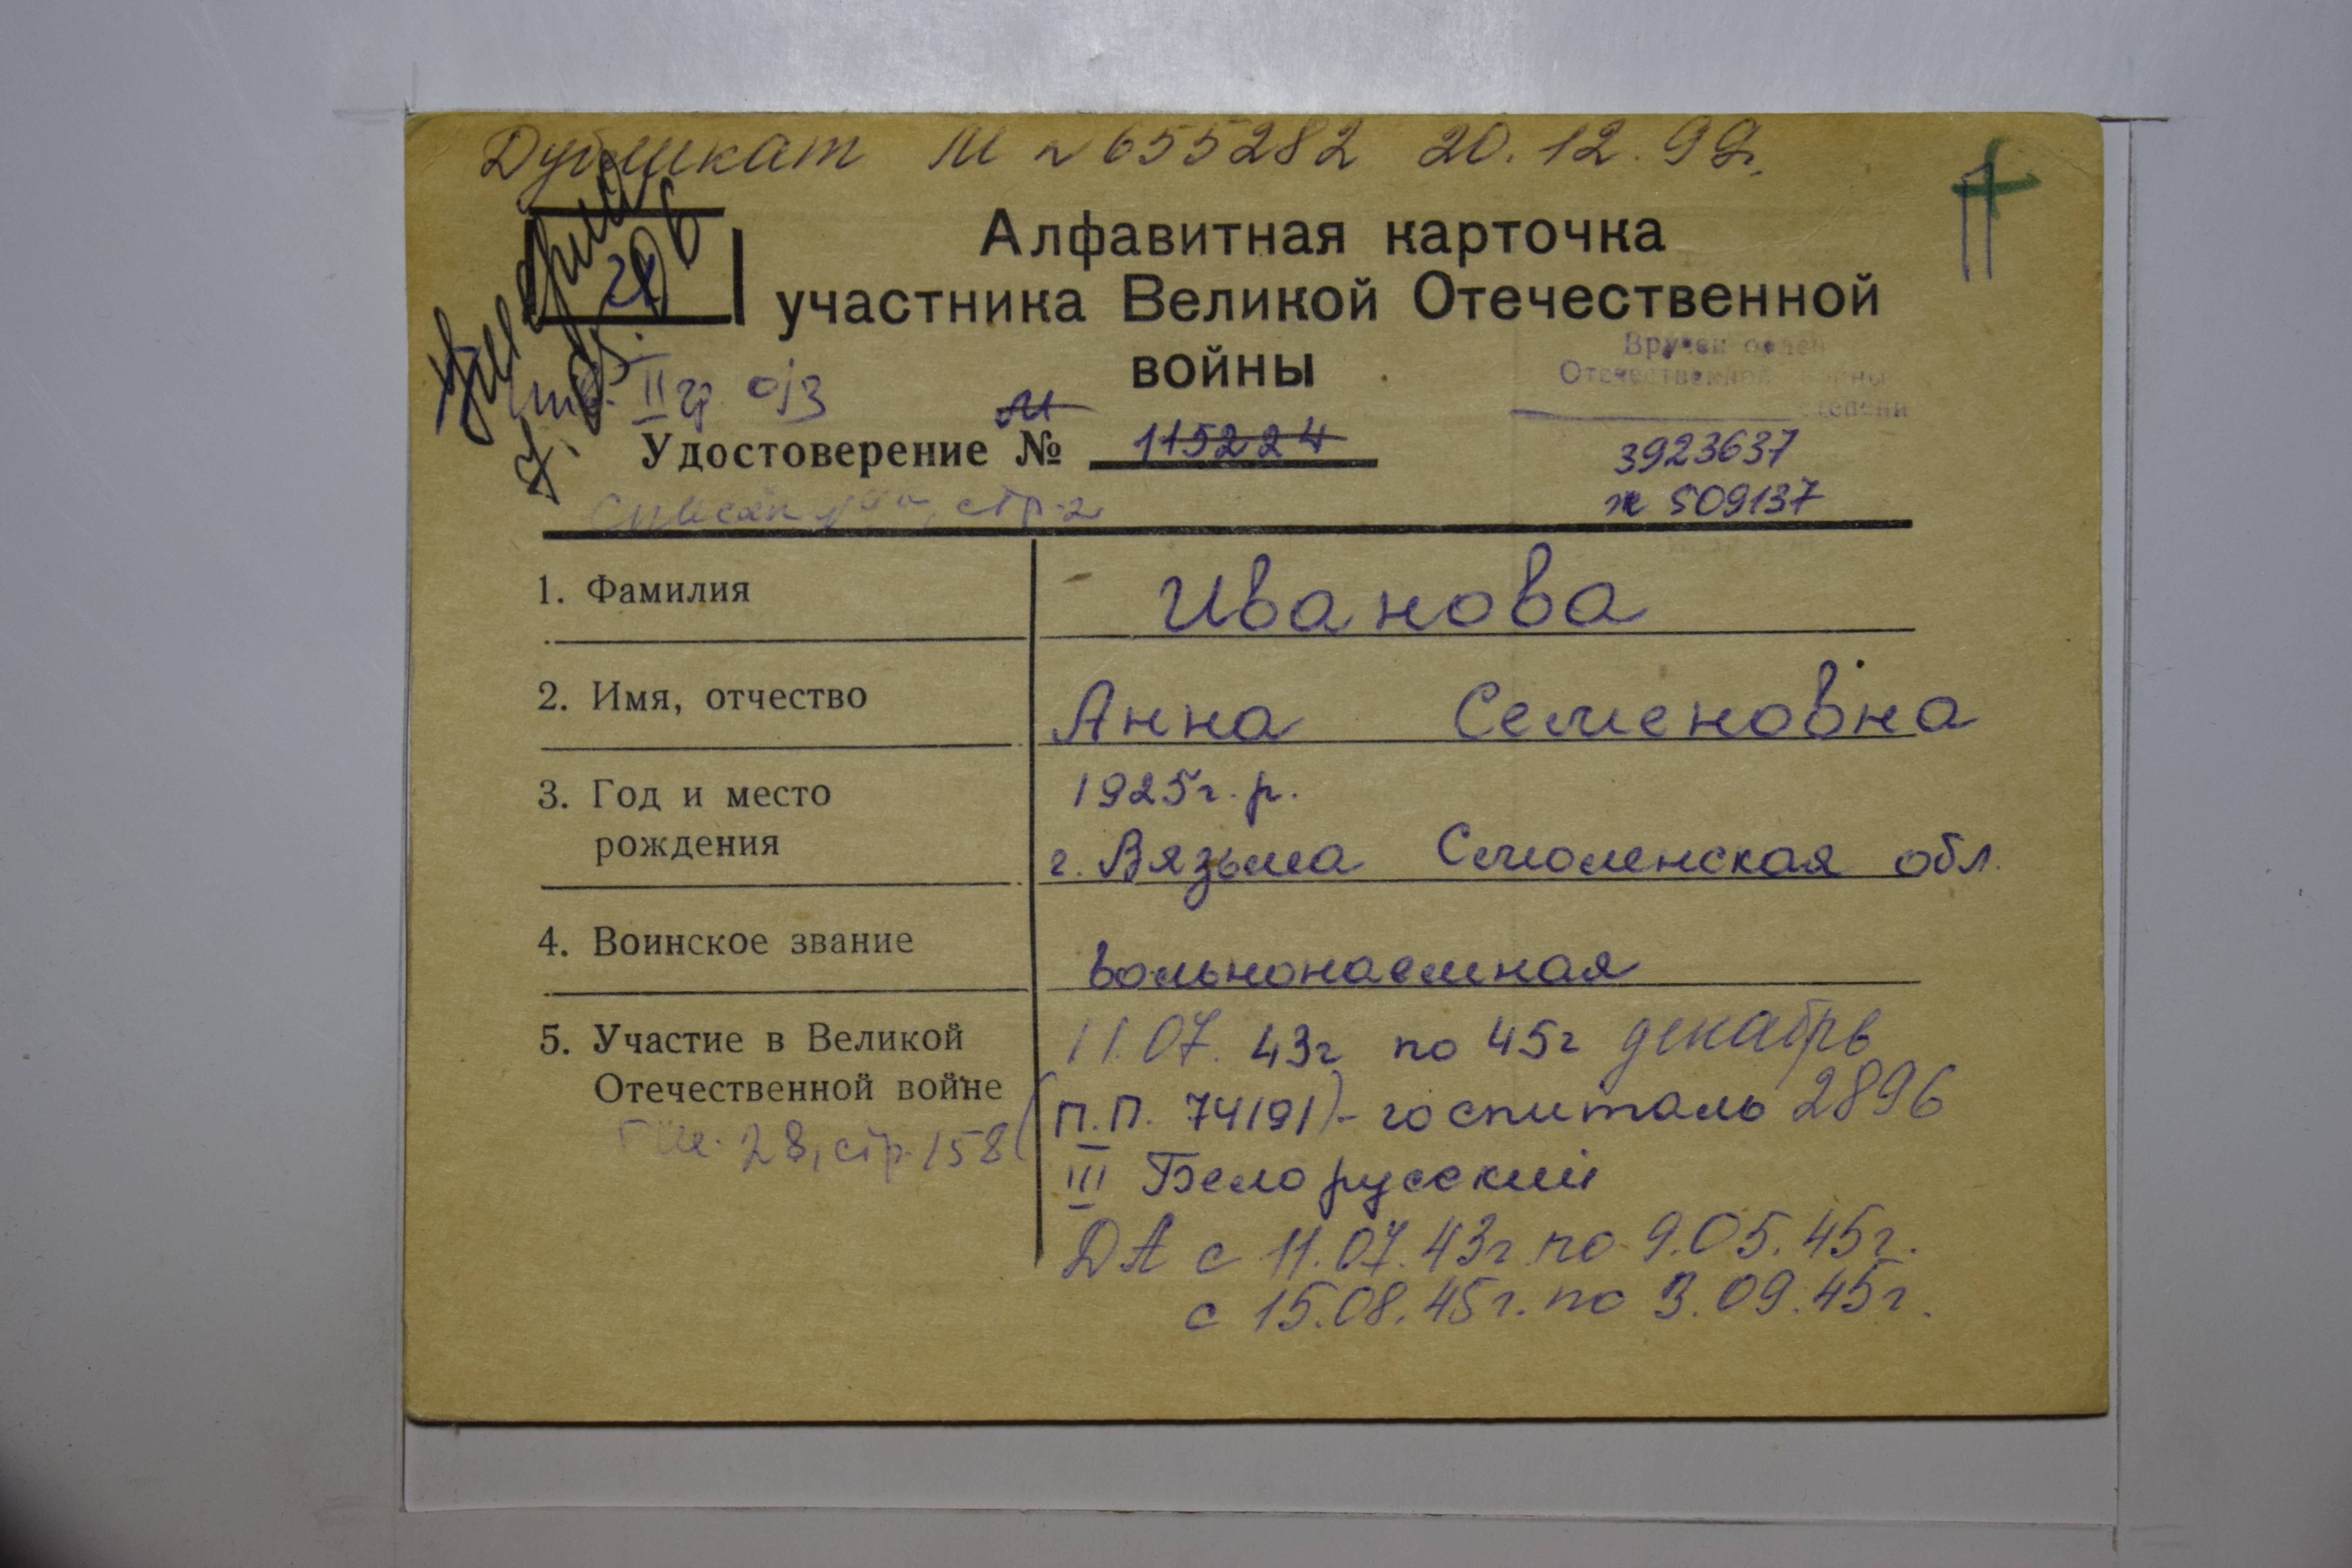 Дубликат М № 655282 20.12.99г.
Умерла
7.05.06
21
Алфавитная карточка
участника Великой Отечественной
войны
Вручен орден
Отечественной войны
степени
инв. II гр. о/з
М
Удостоверение № 115224
3923637
ж 509137
Список стр. 2
1. Фамилия
Иванова
2. Имя, отчество
Анна Семеновна
3. Год и место
рождения
1925г.р.
г. Вязьма Смоленская обл.
4. Воинское звание
вольнонаемная
5. Участие в Великой
Отечественной войне
28, стр. 158
11.07. 43г по 45г декабрь
(П.П. 74191) - госпиталь 2896
III Белорусский
ДА с 11.07.43г. по 9.05.45г.
с 15.08.45г. по 3.09.45г.